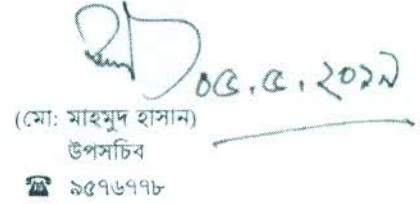 ০৫.৫.২০১৯
(মো: মাহমুদ হাসান)
উপসচিব
☎ ৯৫৭৬৭৭৮